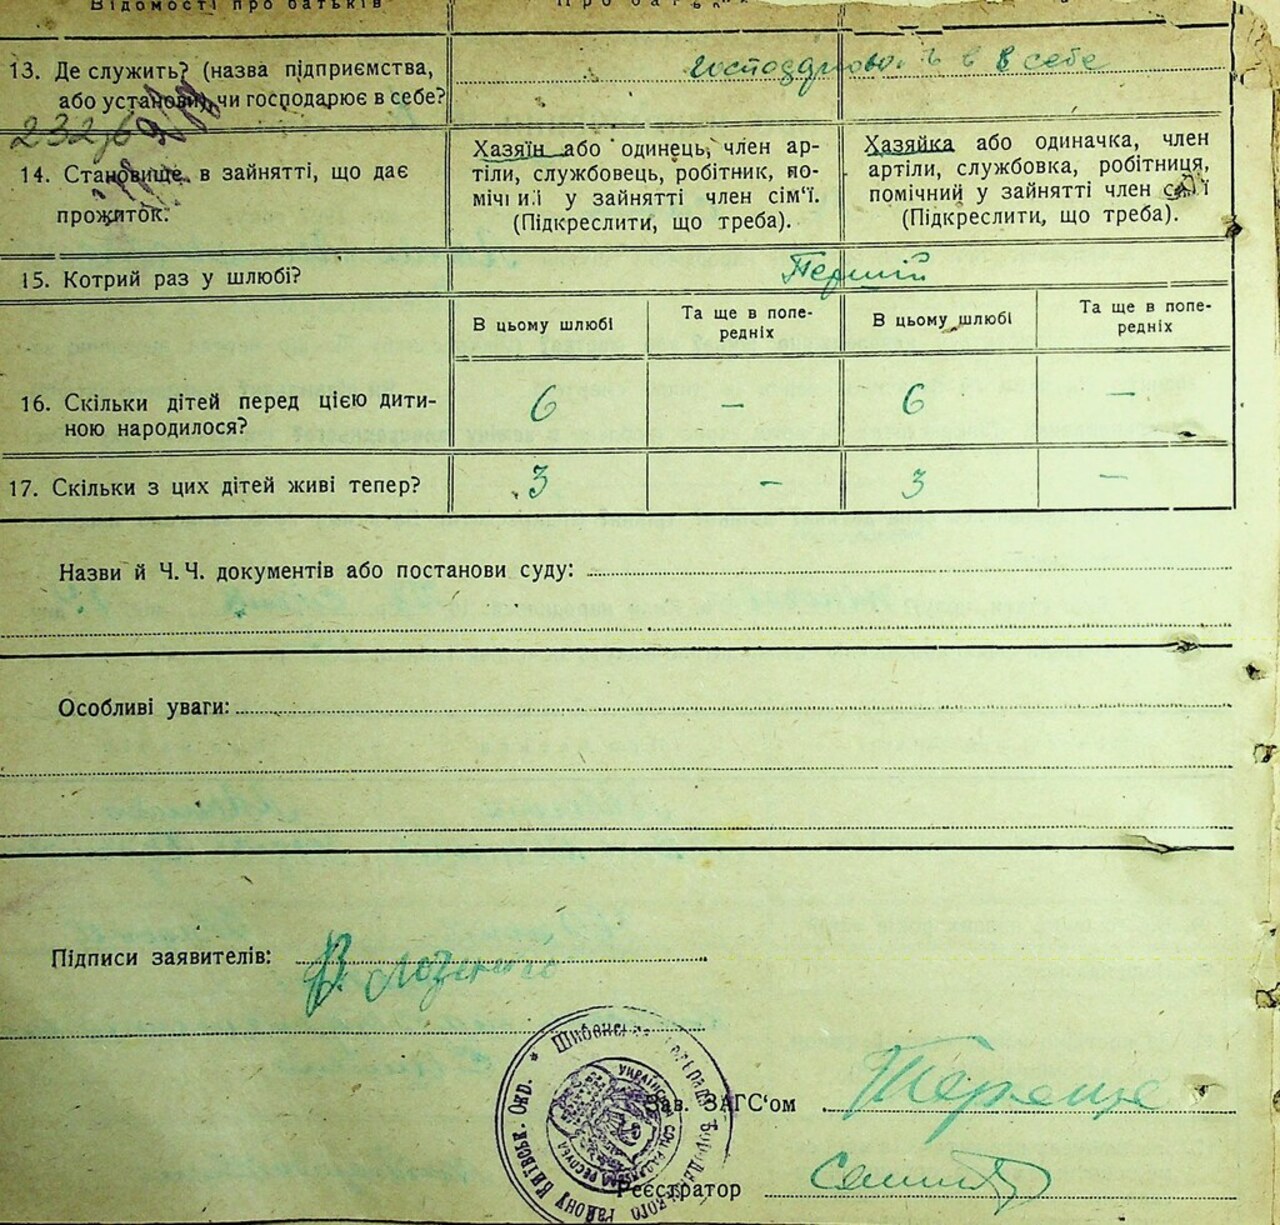 Відомості про батьків
13. Де служить? (назва підприємства,
або установи, чи господарює в себе?
в себе
232,6
14. Становище в зайнятті, що дає
прожиток.
Хазяїн або одинець, член ар-
тіли, службовець, робітник, по-
мічний у зайнятті член сім'ї.
(Підкреслити, що треба).
Хазяйка або одиначка, член
артіли, службовка, робітниця,
помічний у зайнятті член сім'ї
(Підкреслити, що треба).
15. Котрий раз у шлюбі?
Перший
В цьому шлюбі
Та ще в попе-
редніх
В цьому шлюбі
Та ще в попе-
редніх
16. Скільки дітей перед цією дити-
ною народилося?
6 — 6 —
17. Скільки з цих дітей живі тепер?
3 - 3 —
Назви й Ч. Ч. документів або постанови суду:
Особливі уваги:
Підписи заявителів:
Зав. ЗАГС'ом
Реєстратор
Київськ. Окр. * Шибенська
району
УКРАЇНСЬКА СОЦ. РАДЯНСЬКА РЕСПУБЛ